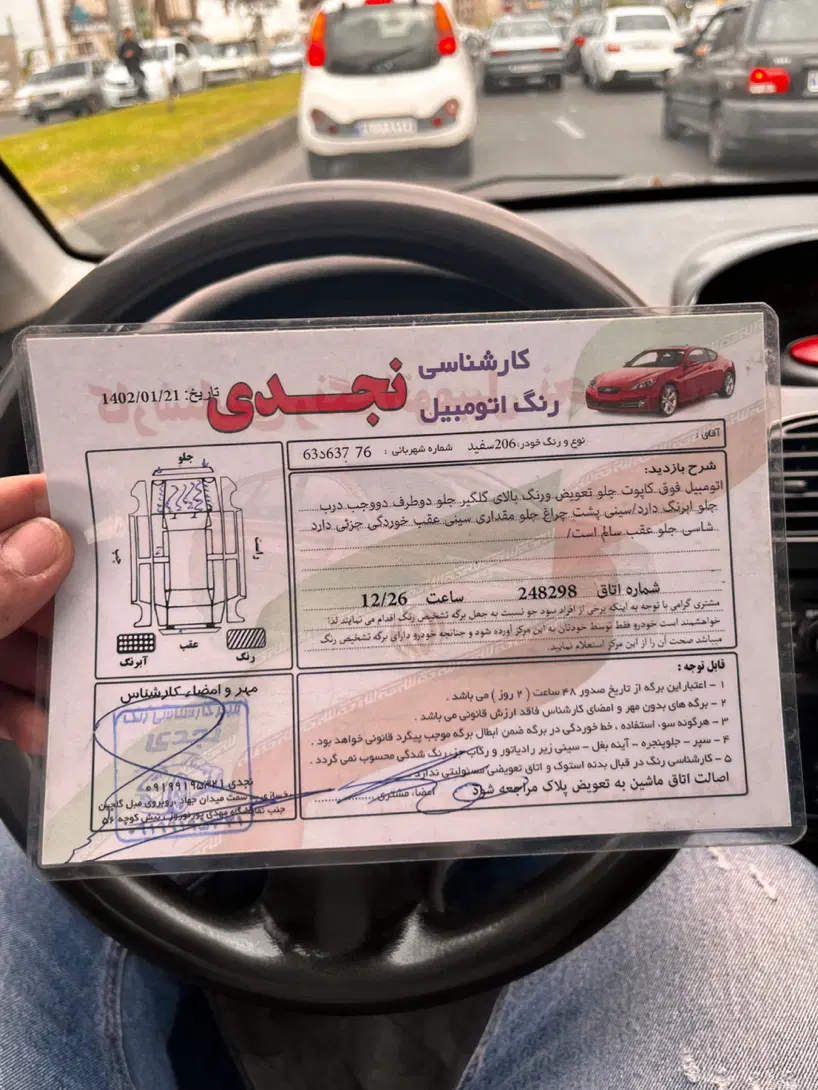 کارشناسی
نجدی
رنگ اتومبیل
تاریخ: 1402/01/21
آقای: نوع و رنگ خودر: 206سفید شماره شهربانی: 76
شرح بازدید:
اتومبیل فوق کاپوت جلو تعویض ورنگ بالای گلگیر جلو دوطرف دووجب درب
جلو ابرنگ دارد/سینی پشت چراغ جلو مقداری سینی عقب خوردگی جزئی دارد
شاسی جلو عقب سالم است/
شماره اتاق 248298 ساعت 12/26
مشتری گرامی با توجه به اینکه برخی از افراد سود جو نسبت به جعل برگه تشخیص رنگ اقدام می نمایند لذا
خواهشمند است خودرو فقط توسط خودتان به این مرکز آورده شود و چنانچه خودرو دارای برگه تشخیص رنگ
میباشد صحت آن را از این مرکز استعلام نمایید.
جلو
راست
چپ
عقب
رنگ
آبرنگ
قابل توجه :
۱ - اعتبار این برگه از تاریخ صدور ۴۸ ساعت (۲ روز) می باشد .
۲ - برگه های بدون مهر و امضای کارشناس فاقد ارزش قانونی می باشد .
۳ - هرگونه سو، استفاده ، خط خوردگی در برگه ضمن ابطال برگه موجب پیگرد قانونی خواهد بود .
۴ - سپر - جلوپنجره - آینه بغل - سینی زیر رادیاتور و رکاب جزء رنگ شدگی محسوب نمی گردد .
۵ - کارشناسی رنگ در قبال بدنه استوک و اتاق تعویضی مسئولیتی ندارد.
اصالت اتاق ماشین به تعویض پلاک مراجعه شود
امضاء مشتری
مهر و امضاء کارشناس
نجدی
سمت میدان جهاد روبروی مبل گلچین
جنب نمایشگاه مهدی پور نوروز ، نبش کوچه ۵۶